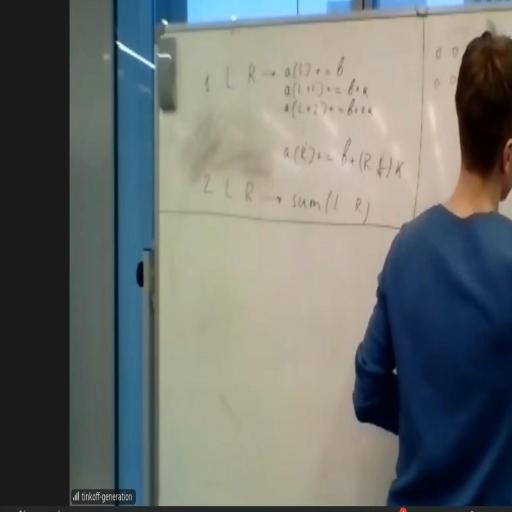 1 L R → a(L) += b
a(L+1) += b+k
a(L+2) += b+2k
a(R) += b+(R-L)k
2 L R → sum(L R)
0 0
0 0
tinkoff-generation